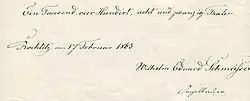 Ein Tausend vier Hundert, acht und zwanzig Thaler
Rochlitz, am 17 Februar 1863
Wilhelm Eduard Schmeisser
Orgelbauer.